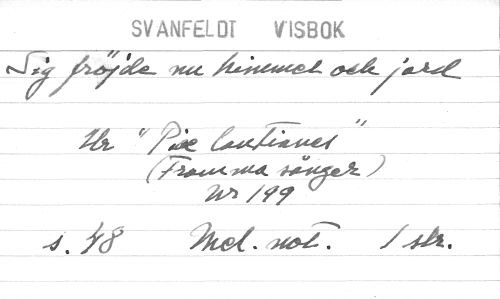 SVANFELDT VISBOK
Sig fröjde nu himmel och jord
Ur "Piæ Cantiones"
(Fromma sånger)
Nr 199
s. 48 Mel. not. 1 str.